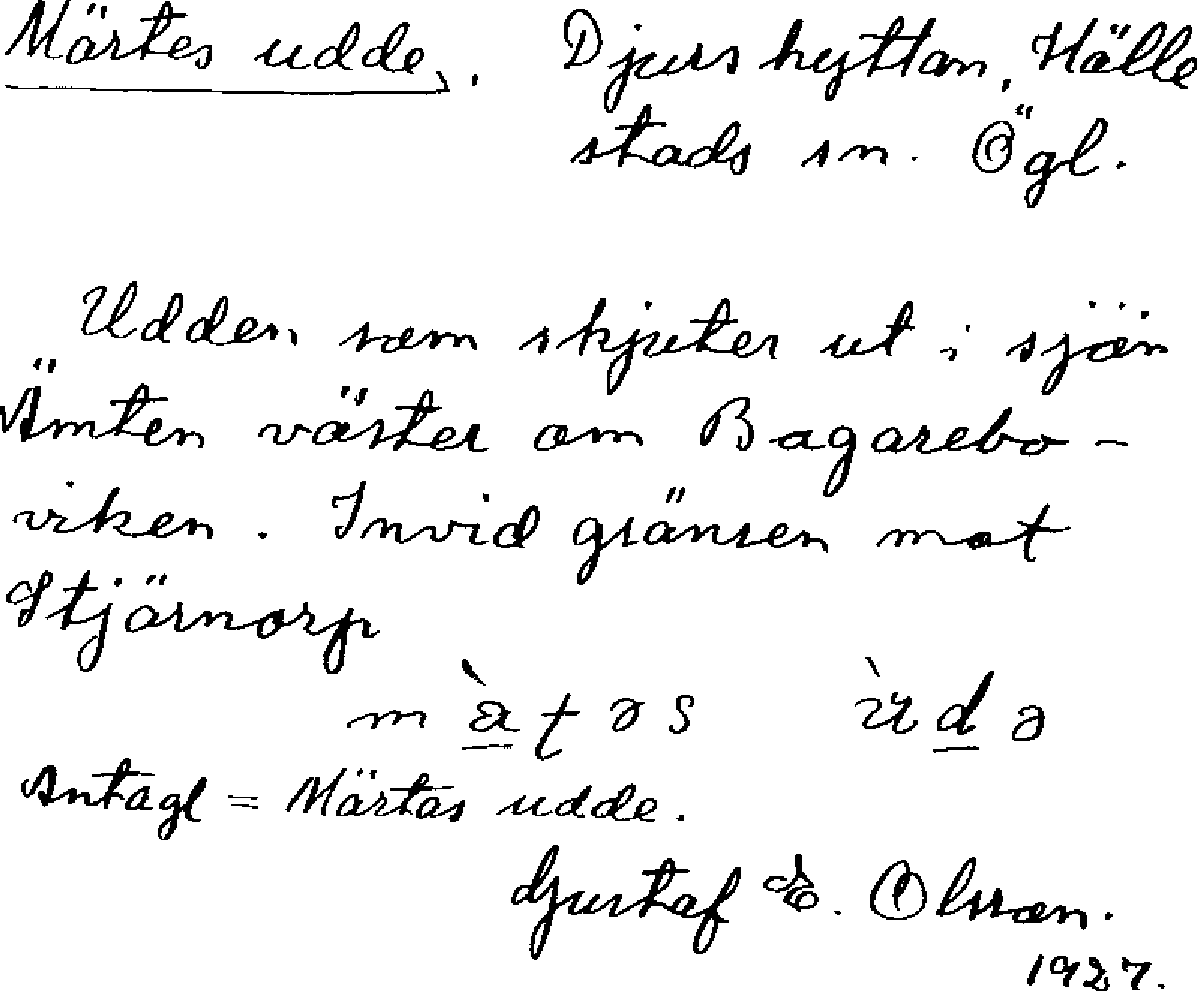 Märtes udde. Djurshyttan, Hälle
stads sn. Ögl.
Udden som skjuter ut i sjön
Ämten väster om Bagarebo-
viken. Invid gränsen mot
Stjärnorp
Antagl = Märtas udde.
Gustaf E. Olsson.
1927.